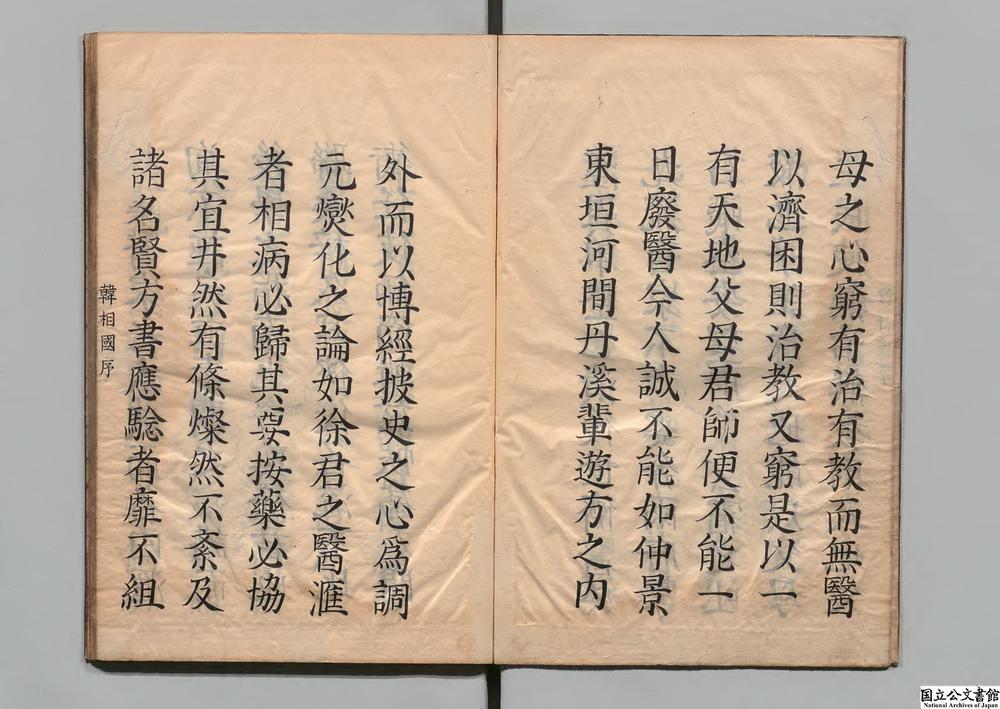 母之心窮有治有教而無醫
以濟困則治教又窮是以一
有天地父母君師便不能一
日廢醫今人誠不能如仲景
東垣河間丹溪輩遊方之内
外而以博經披史之心爲調
元爕化之論如徐君之醫滙
者相病必歸其要按藥必協
其宜井然有條燦然不紊及
諸名賢方書應驗者靡不組
韓相國序
国立公文書館
National Archives of Japan